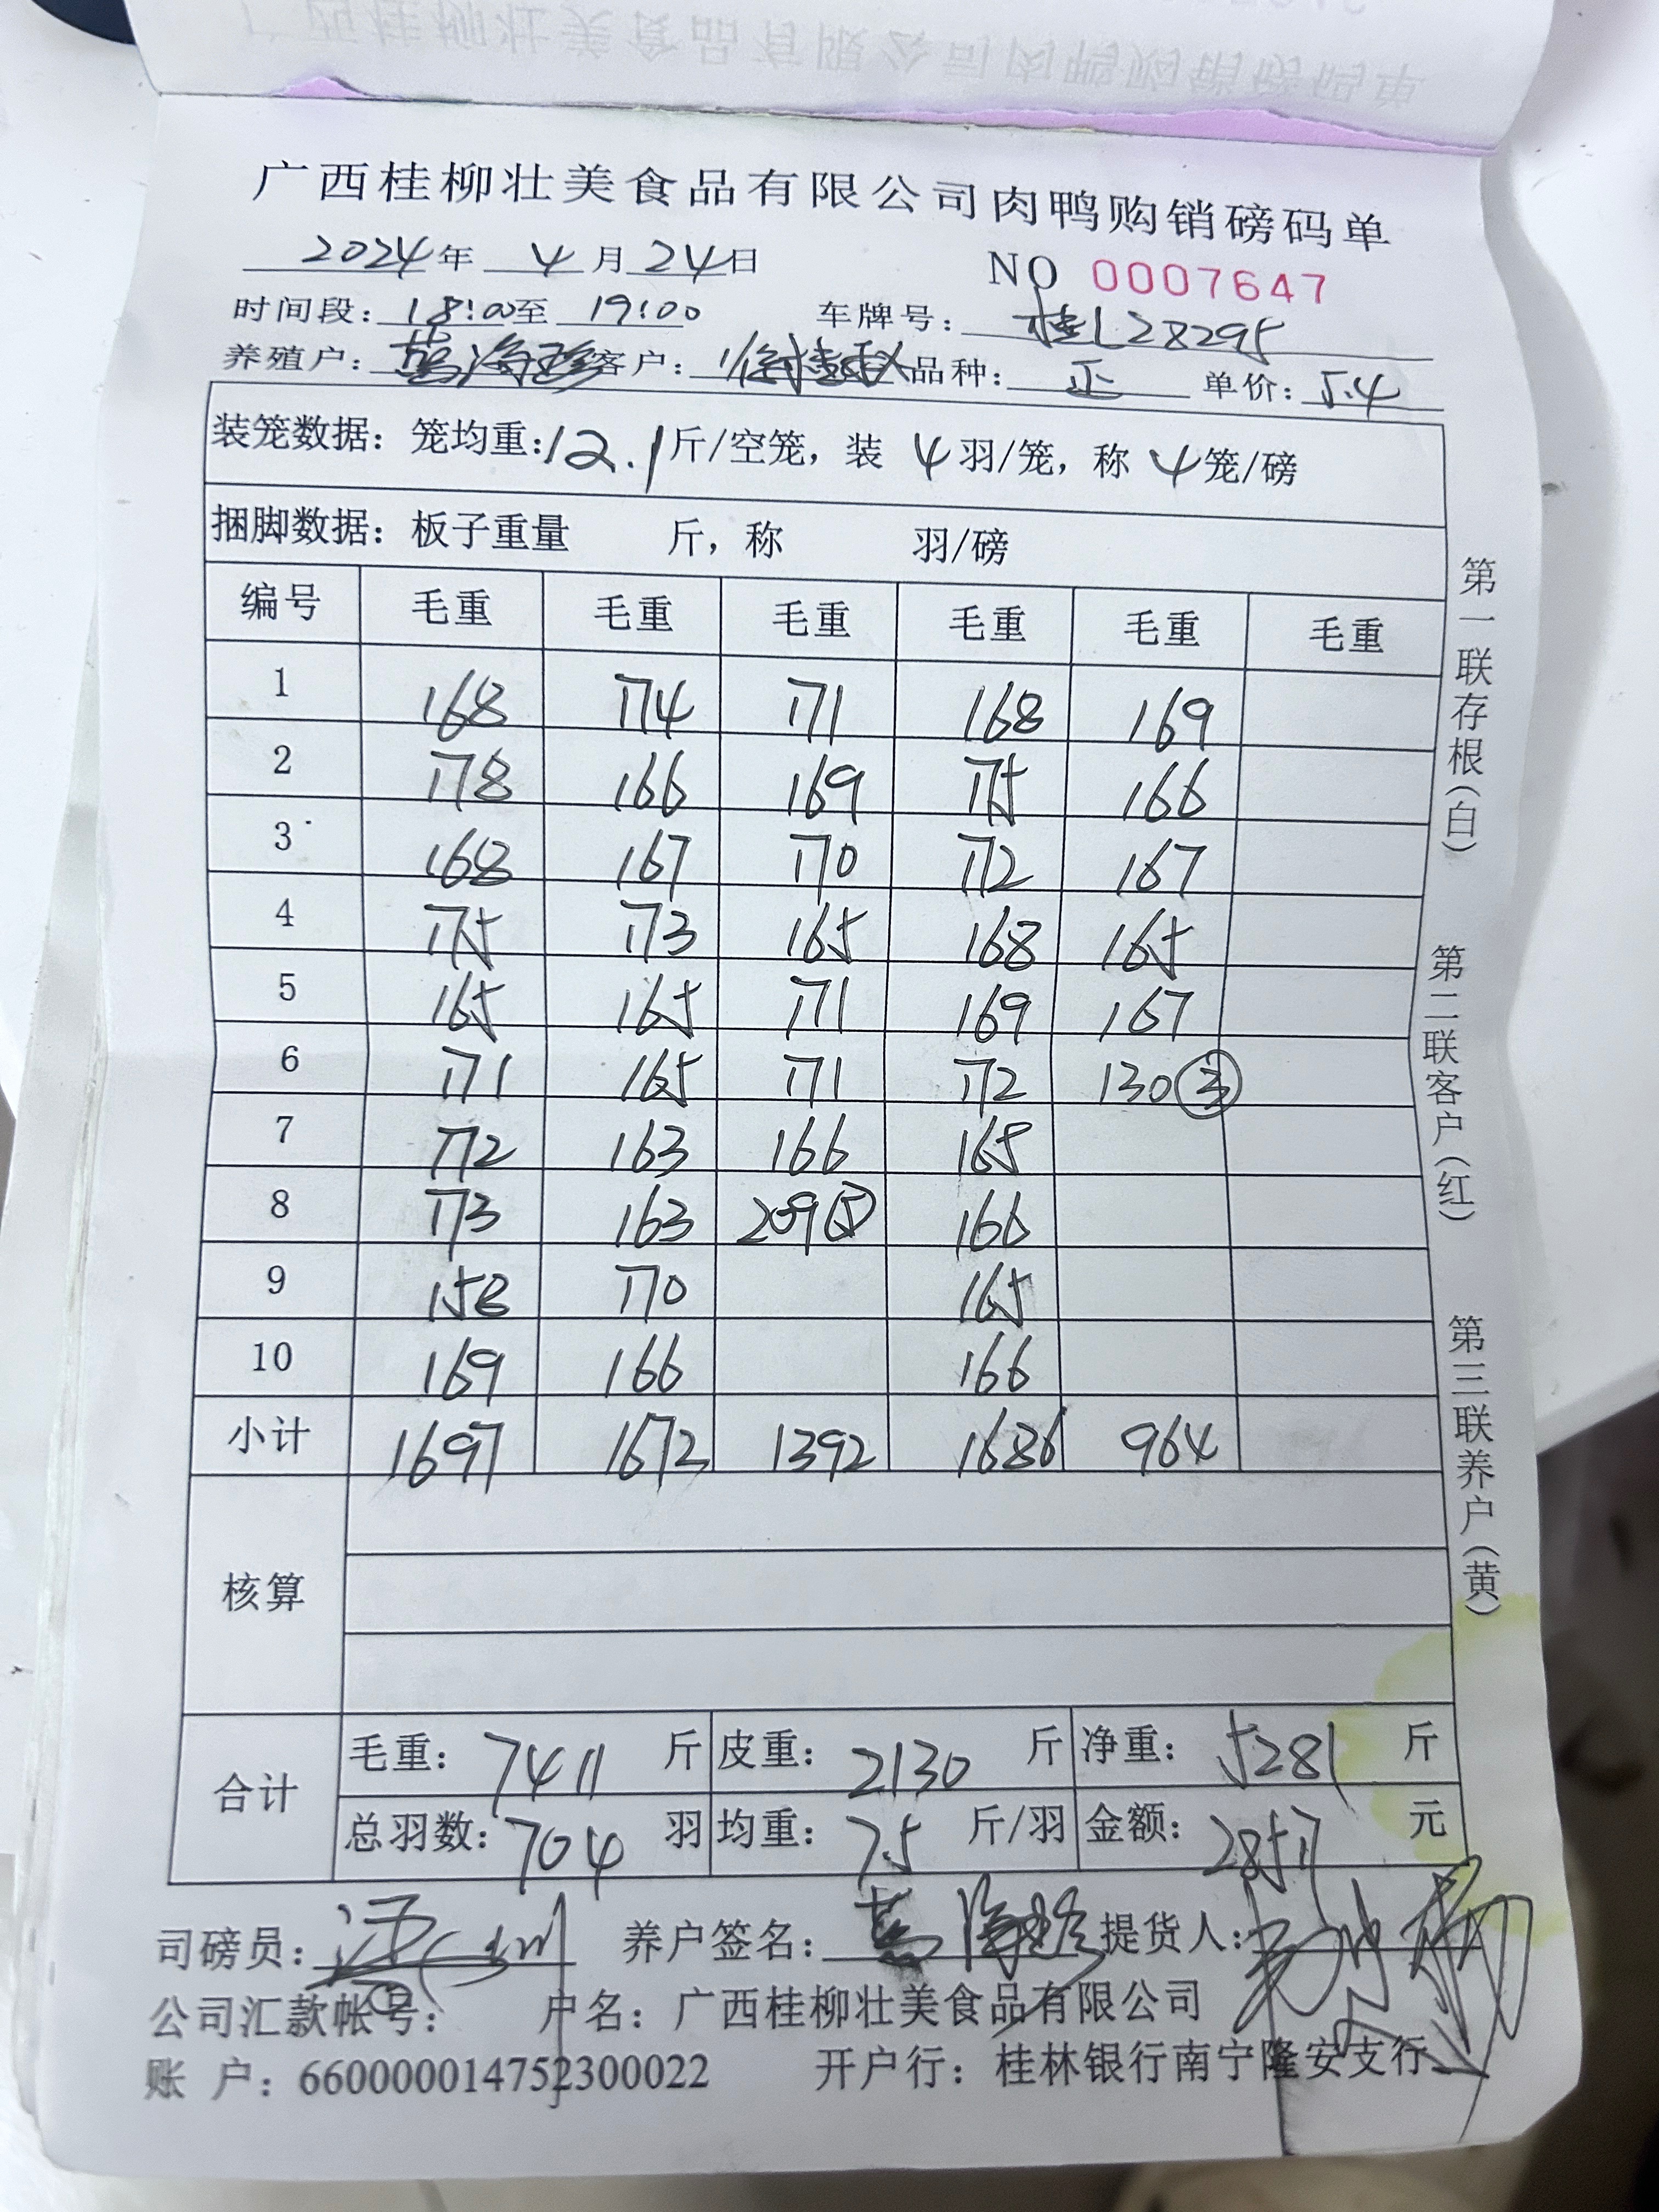 广西桂柳壮美食品有限公司肉鸭购销磅码单
2024年 4月24日 NO 0007647
时间段：18:00至 19:00 车牌号：桂L28295
养殖户： 海珍 客户： 品种：正 单价：5.4
装笼数据：笼均重：12.1斤/空笼，装 4羽/笼，称 4笼/磅
捆脚数据：板子重量 斤，称 羽/磅
编号 毛重 毛重 毛重 毛重 毛重 毛重
1 168 174 171 168 169
2 178 166 169 175 166
3 168 167 170 172 167
4 175 173 165 168 165
5 165 165 171 169 167
6 171 165 171 172 130③
7 172 163 166 165
8 173 163 209⑤ 166
9 158 170 165
10 169 166 166
小计 1697 1672 1392 1686 964
核算
合计
毛重：7411 斤 皮重：2130 斤 净重：5281 斤
总羽数：704 羽 均重：7.5 斤/羽 金额：28517 元
司磅员： 养户签名： 海珍 提货人：
公司汇款帐号： 户名：广西桂柳壮美食品有限公司
账 户：660000014752300022 开户行：桂林银行南宁隆安支行
第一联存根（白）
第二联客户（红）
第三联养户（黄）